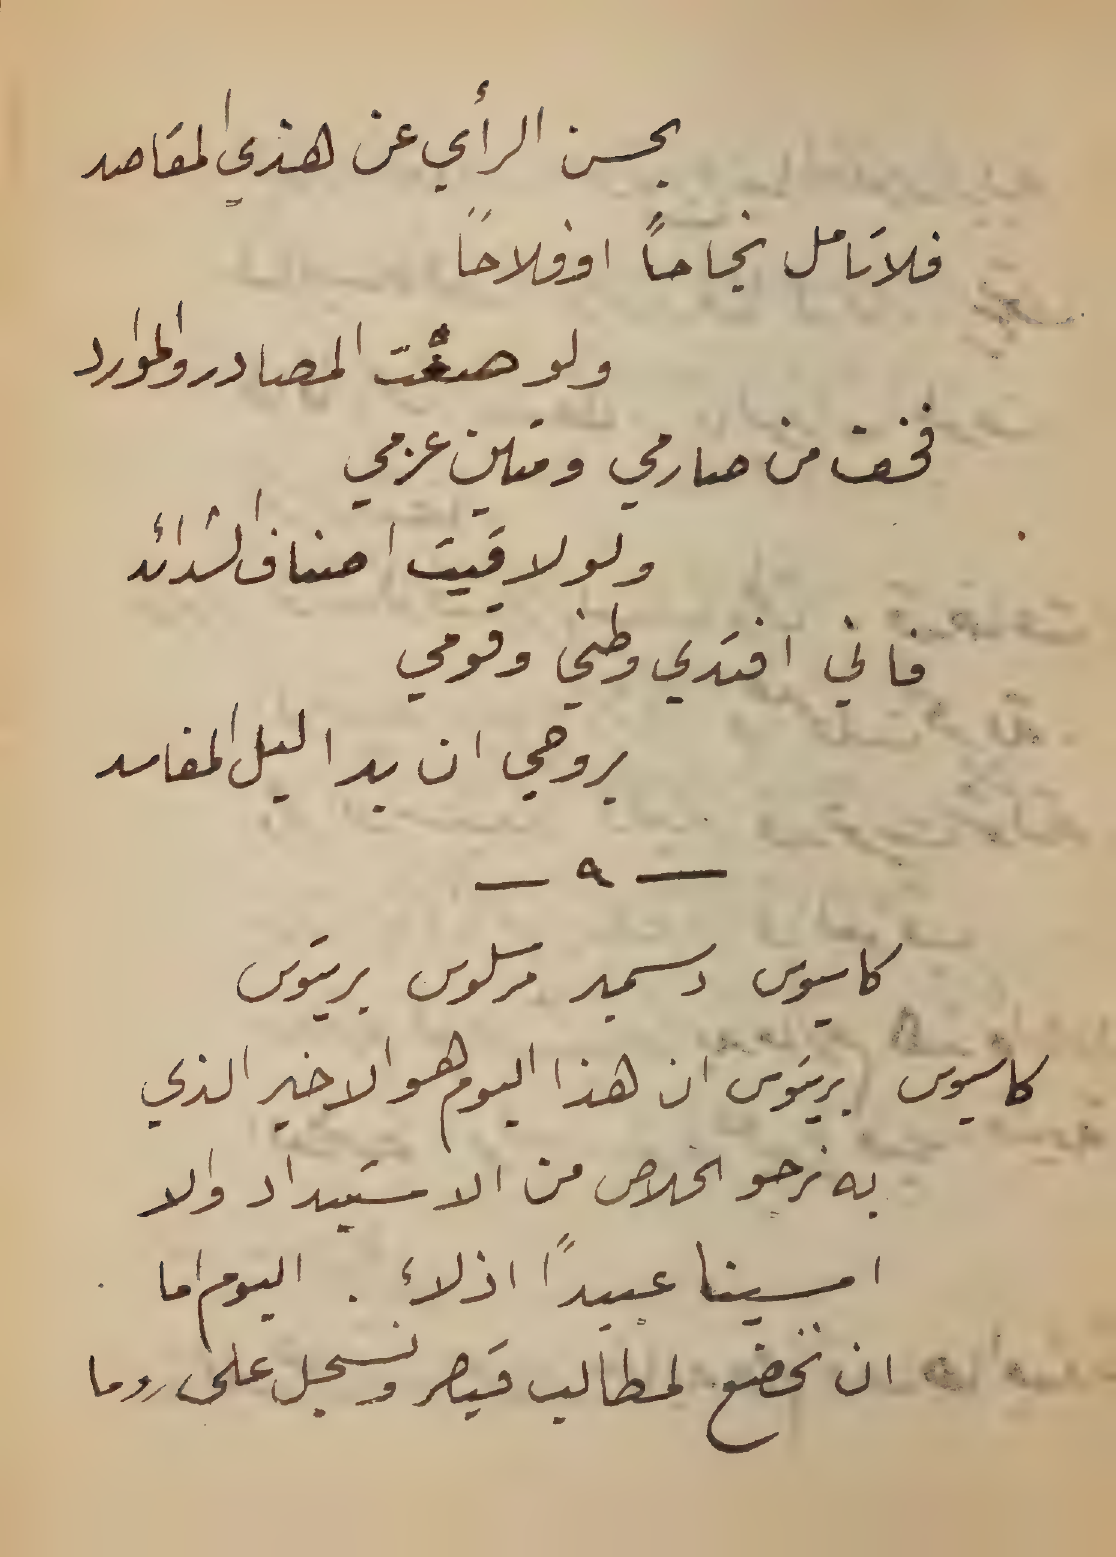 بحسن الرأي عن هذي المقاصد
فلا تامل نجاحاً او فلاحاً
ولو صغت المصادر والموارد
فخف من صارمي ومتين عزمي
ولو لاقيت اصناف الشدائد
فاني افتدي وطني وقومي
بروحي ان بدا ليل المفاسد
— ٩ —
كاسيوس دسمبر مرسلوس بريتوس
كاسيوس بريتوس ان هذا اليوم هو الاخير الذي
به نرجو الخلاص من الاستبداد والا
امسينا عبيداً اذلاء . اليوم اما
ان نخضع لمطاليب قيصر ونسجل على روما